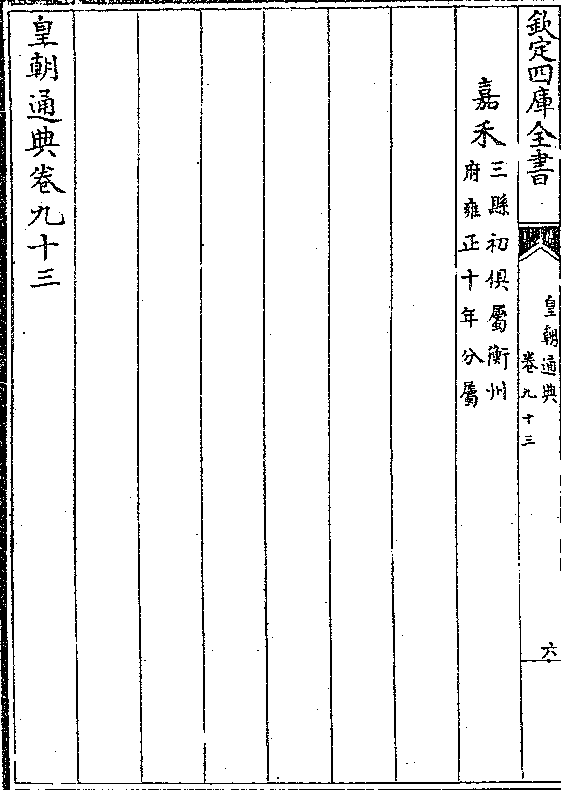 欽定四庫全書
皇朝通典
卷九十三
六
嘉禾三縣初俱屬衡州
府雍正十年分屬
皇朝通典卷九十三